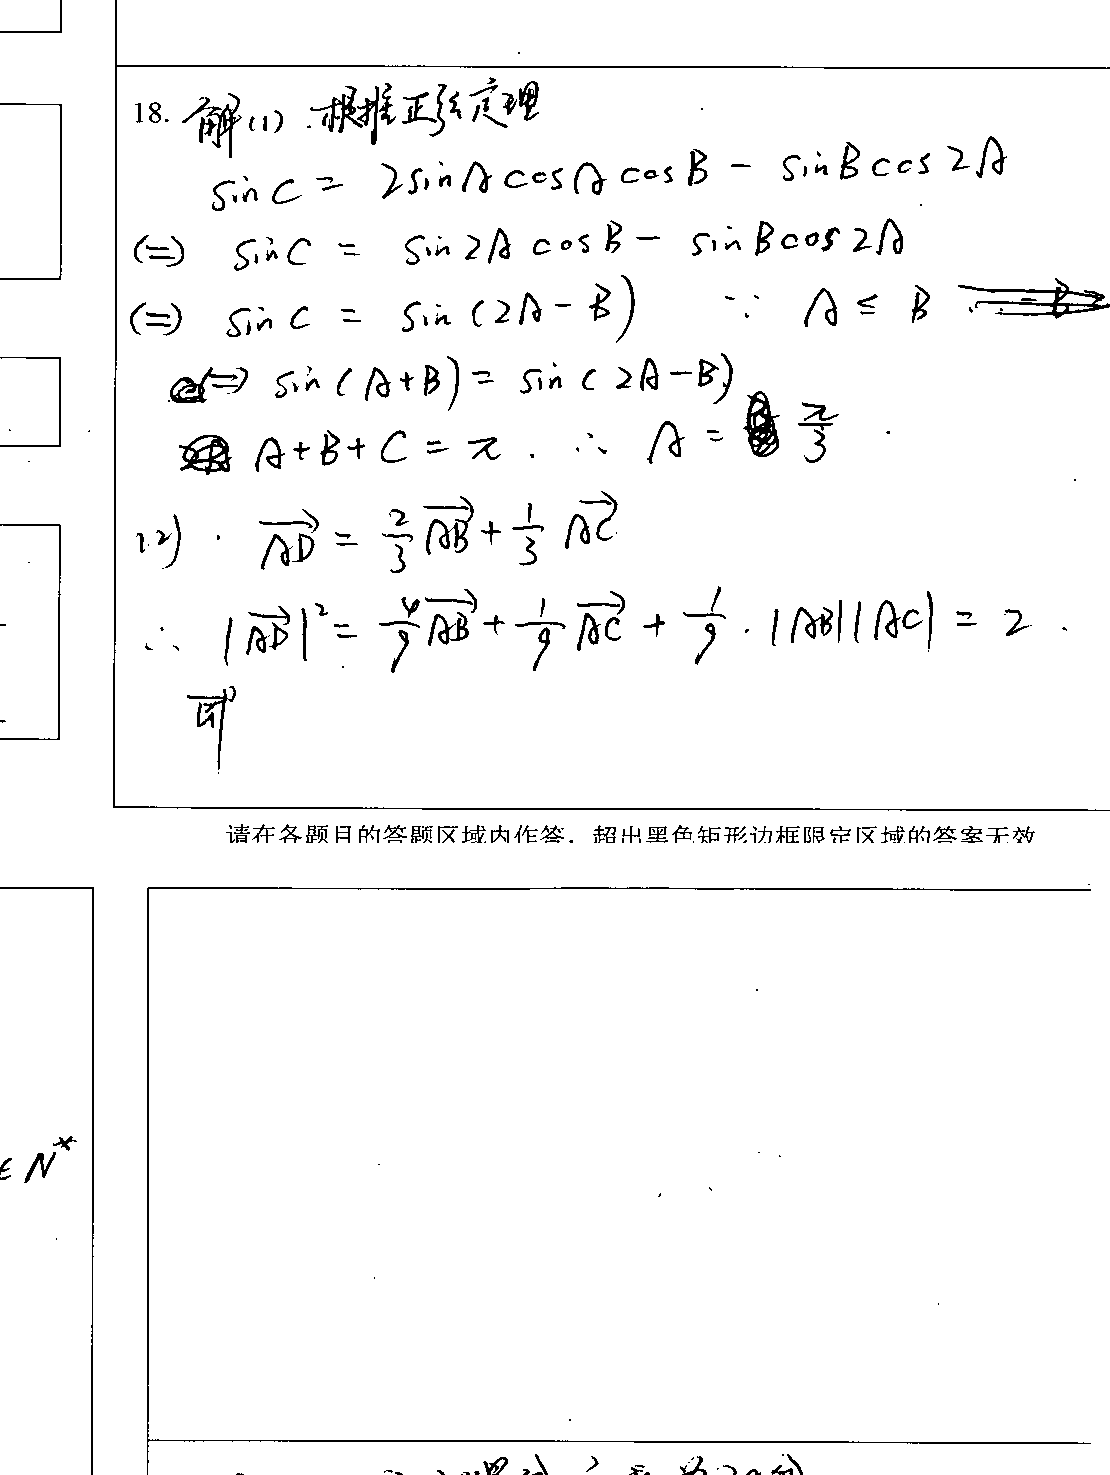 18. 解(1).根据正弦定理
sinC = 2sinAcosAcosB - sinBcos2A
(=) sinC = sin2AcosB - sinBcos2A
(=) sinC = sin(2A-B) ∵ A ≤ B
(=) sin(A+B) = sin(2A-B)
A+B+C=π. ∴ A = π/3.
(2). \overrightarrow{AD} = 2/3 \overrightarrow{AB} + 1/3 \overrightarrow{AC}
∴ |\overrightarrow{AD}|² = 4/9 \overrightarrow{AB} + 1/9 \overrightarrow{AC} + 1/9 · |AB||AC| = 2.
即
请在各题目的答题区域内作答，超出黑色矩形边框限定区域的答案无效
∈ N*